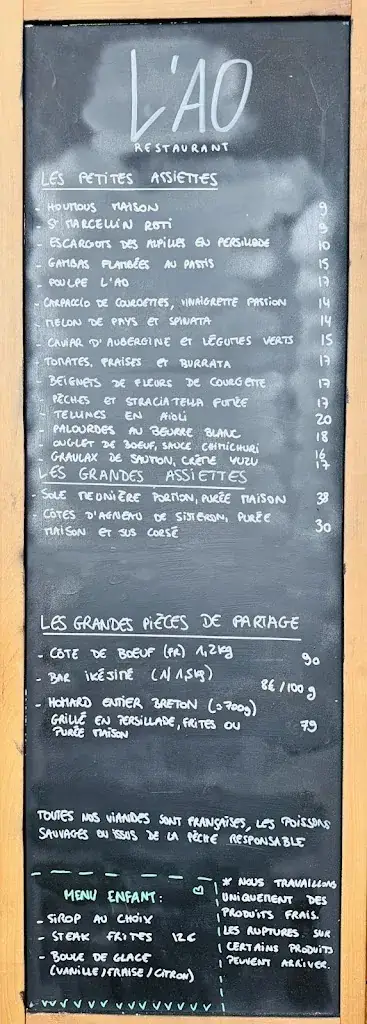 L'AO
RESTAURANT
LES PETITES ASSIETTES
- HOUMOUS MAISON 9
- ST MARCELLIN ROTI 9
- ESCARGOTS DES ALPILLES EN PERSILLADE 10
- GAMBAS FLAMBÉES AU PASTIS 15
- POULPE L'AO 17
- CARPACCIO DE COURGETTES, VINAIGRETTE PASSION 14
- MELON DE PAYS ET SPIANATA 14
- CAVIAR D'AUBERGINE ET LÉGUMES VERTS 15
- TOMATES, FRAISES ET BURRATA 17
- BEIGNETS DE FLEURS DE COURGETTE 17
- PÊCHES ET STRACIATELLA FUMÉE 17
- TELLINES EN AIOLI 20
- PALOURDES AU BEURRE BLANC 18
- ONGLET DE BOEUF, SAUCE CHIMICHURI 16
- GRAVLAX DE SAUMON, CRÈME YUZU 17
LES GRANDES ASSIETTES
- SOLE MEUNIÈRE PORTION, PURÉE MAISON 38
- CÔTES D'AGNEAU DE SISTERON, PURÉE
MAISON ET JUS CORSÉ 30
LES GRANDES PIÈCES DE PARTAGE
- CÔTE DE BOEUF (FR) 1,2kg 90
- BAR IKÉJIMÉ (1/1,5kg) 8€/100g
- HOMARD ENTIER BRETON (>700g)
GRILLÉ EN PERSILLADE, FRITES OU 79
PURÉE MAISON
TOUTES NOS VIANDES SONT FRANÇAISES, LES POISSONS
SAUVAGES OU ISSUS DE LA PÊCHE RESPONSABLE
MENU ENFANT:
- SIROP AU CHOIX
- STEAK FRITES 12€
- BOULE DE GLACE
(VANILLE/FRAISE/CITRON)
* NOUS TRAVAILLONS
UNIQUEMENT DES
PRODUITS FRAIS.
LES RUPTURES SUR
CERTAINS PRODUITS
PEUVENT ARRIVER.